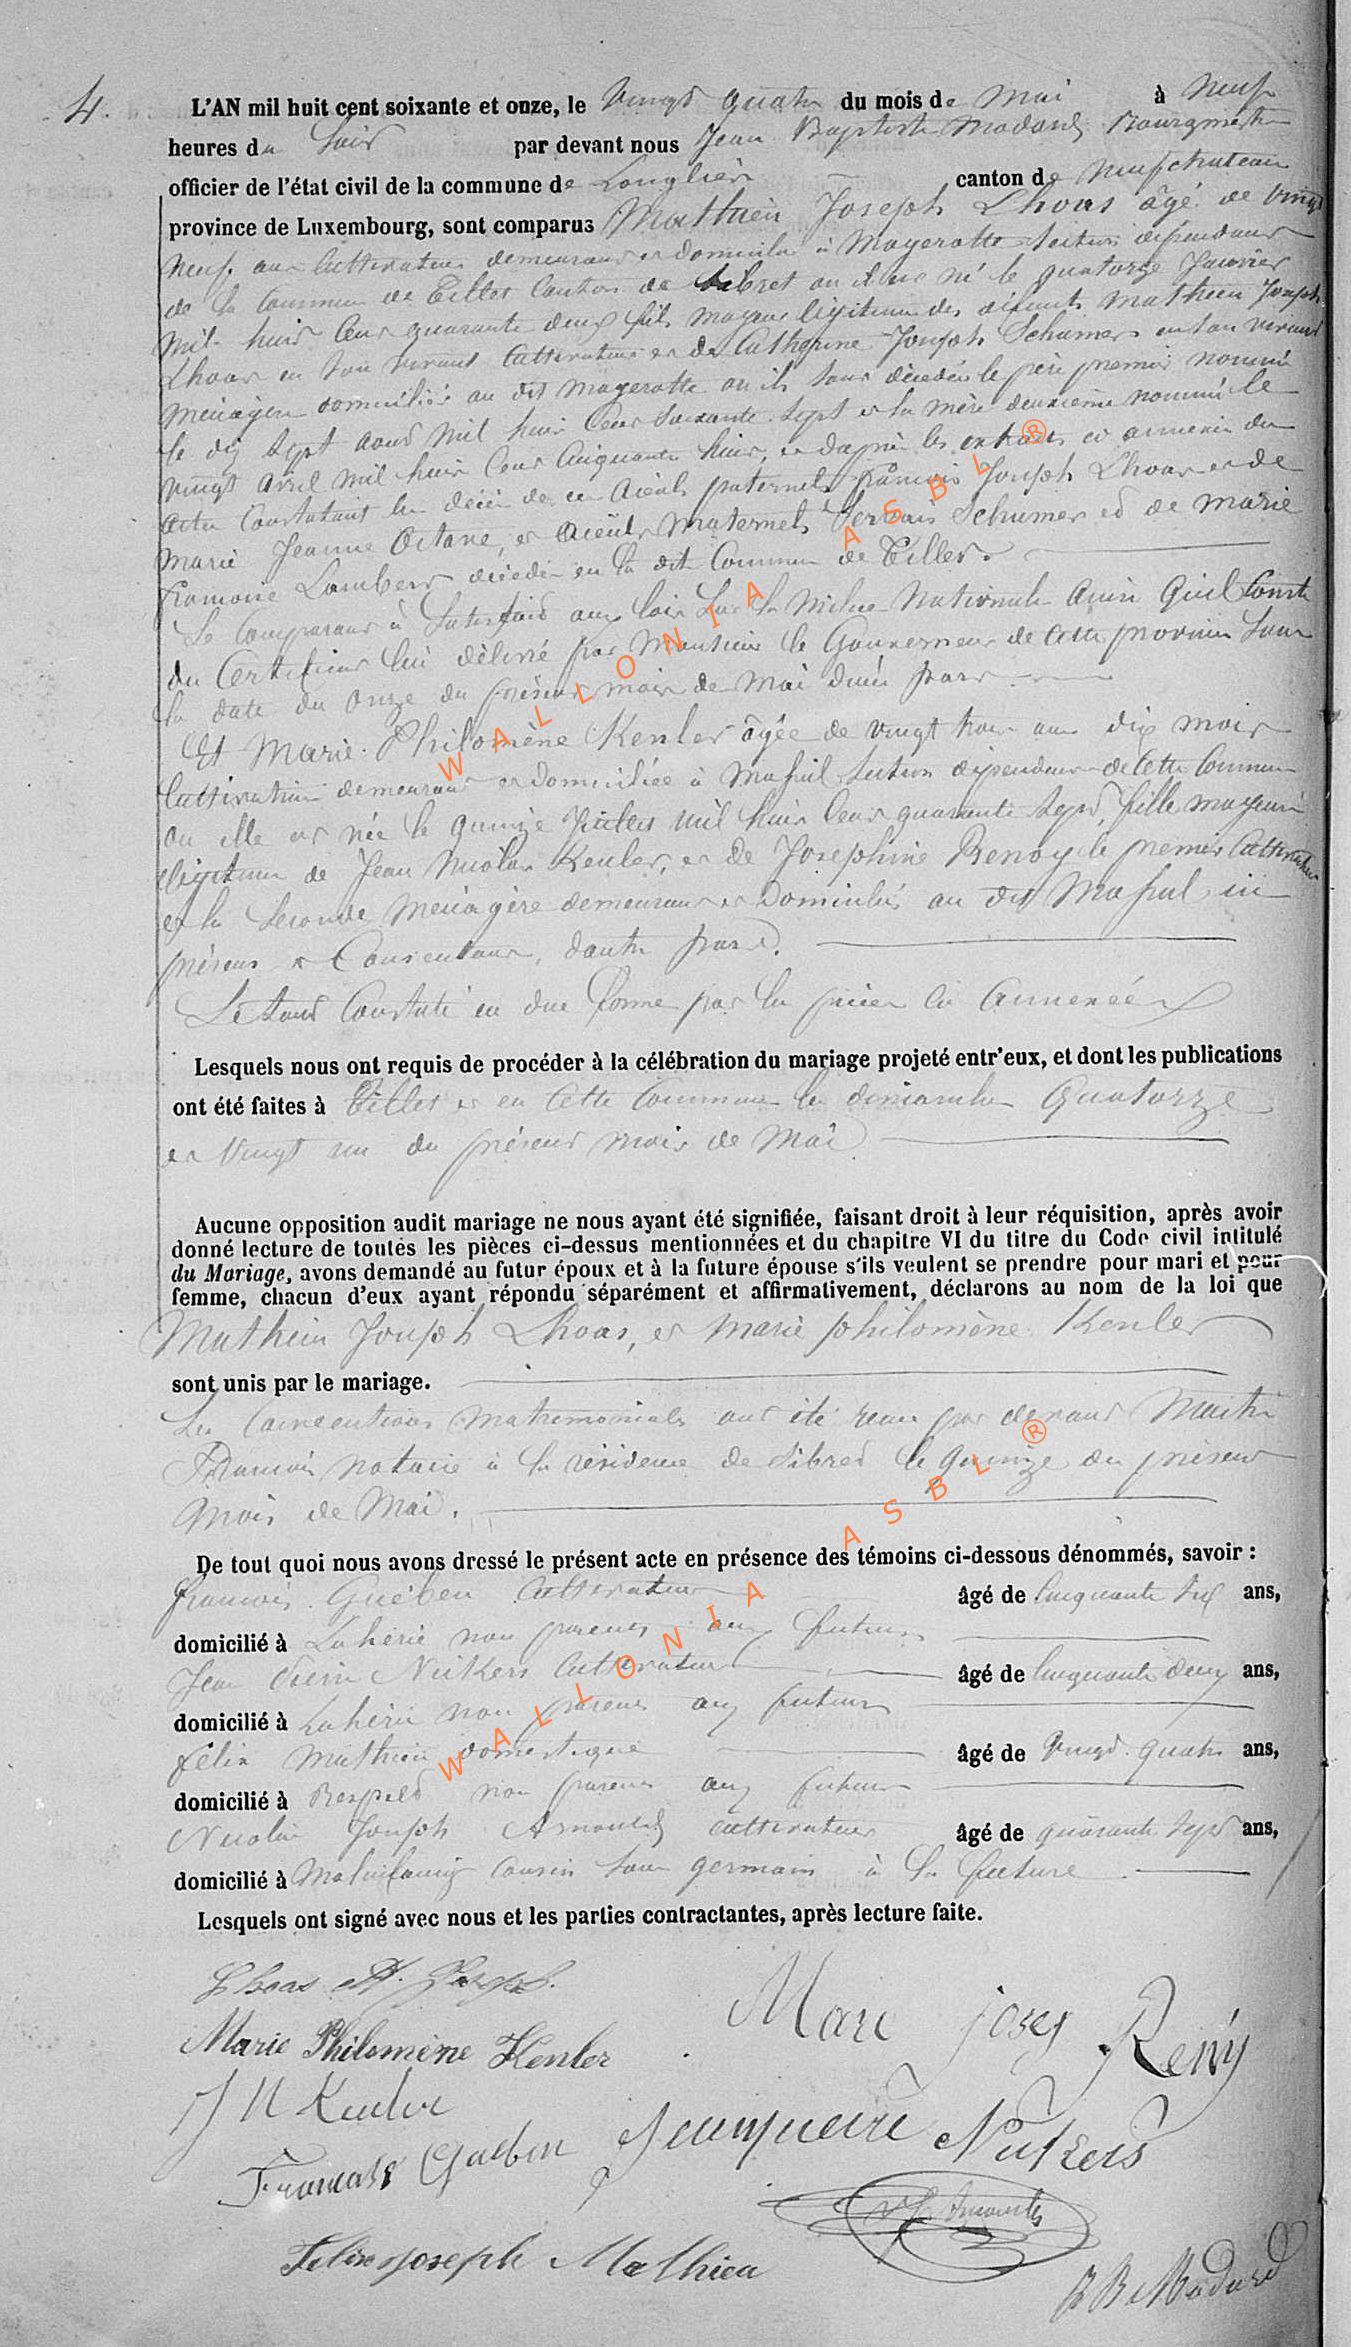 4.
L'AN mil huit cent soixante et onze, le vingt quatre du mois de Mai à neuf
heures du Soir par devant nous Jean Baptiste Modard Bourgmestre
officier de l'état civil de la commune de Longlier canton de Neufchateau
province de Luxembourg, sont comparus Mathieu Joseph Lhoas âgé de vingt
neuf ans Cultivateur demeurant et domicilié à Magerotte Section dépendant
de la Commune de Tillet Canton de Sibret où il est né le quatorze Janvier
mil huit Cent quarante deux fils majeur légitime des défunts Mathieu Joseph
Lhoas en son vivant Cultivateur et de Catherine Joseph Schumer en son vivant
ménagère domiciliés au dit Magerotte où ils sont décédés le père premier nommé
le dix Sept août Mil huit Cent Soixante Sept et la mère deuxième nommé le
vingt avril mil huit Cent Cinquante huit, et d'après les extraits ci annexés des
actes Constatant les décès de ces aïeuls paternels François Joseph Lhoas et de
Marie Jeanne Octave, et aïeuls Maternels Servais Schumer et de Marie
François Lambert décédés en la dite Commune de Tillet.
Le Comparant à Satisfait aux lois Sur la Milice Nationale Ainsi Quil Conste
du Certificat lui délivré par Monsieur le Gouverneur de Cette province Sous
la date du onze du présent mois de Mai d'une part
Et Marie Philomène Kenler âgée de vingt trois ans dix mois
Cultivatrice demeurant et domiciliée à Massul Section dépendant de Cette Commune
où elle est née le quinze Juillet mil huit Cent quarante Sept, fille majeure
légitime de Jean Nicolas Kenler, et de Josephine Benoy le premier Cultivateur
et la Seconde Ménagère demeurant et Domiciliés au dit Massul ici
présent et Consentant, dautre part.
Le tout Constaté en due forme par les pièces ci Annexées
Lesquels nous ont requis de procéder à la célébration du mariage projeté entr'eux, et dont les publications
ont été faites à Tillet et en Cette Commune les dimanches Quatorze
et Vingt un du présent mois de Mai
Aucune opposition audit mariage ne nous ayant été signifiée, faisant droit à leur réquisition, après avoir
donné lecture de toutes les pièces ci-dessus mentionnées et du chapitre VI du titre du Code civil intitulé
du Mariage, avons demandé au futur époux et à la future épouse s'ils veulent se prendre pour mari et pour
femme, chacun d'eux ayant répondu séparément et affirmativement, déclarons au nom de la loi que
Mathieu Joseph Lhoas, et Marie philomène Kenler
sont unis par le mariage.
Les Conventions Matrimoniales ont été reçu par devant Maitre
François notaire à la résidence de Sibret le quinze du présent
Mois de Mai.
De tout quoi nous avons dressé le présent acte en présence des témoins ci-dessous dénommés, savoir :
François Guében Cultivateur âgé de Cinquante Six ans,
domicilié à Lahérie non parent aux futurs
Jean Pierre Nutkers Cultivateur âgé de Cinquante deux ans,
domicilié à Lahérie non parent aux futurs
Félix Mathieu domestique âgé de Vingt quatre ans,
domicilié à Respelt non parent aux futurs
Nicolas Joseph Arnould cultivateur âgé de quarante Sept ans,
domicilié à Molinfaing cousin sous germain à la future
Lesquels ont signé avec nous et les parties contractantes, après lecture faite.
Lhoas M. Joseph.
Marie Philomène Kenler
Marc Josep Remy
J N Kenler
François Guebin
Jeanpierre Nutkers
NJ Arnould
Felix joseph Mathieu
J B Modard
WALLONIA ASBL ®
WALLONIA ASBL ®